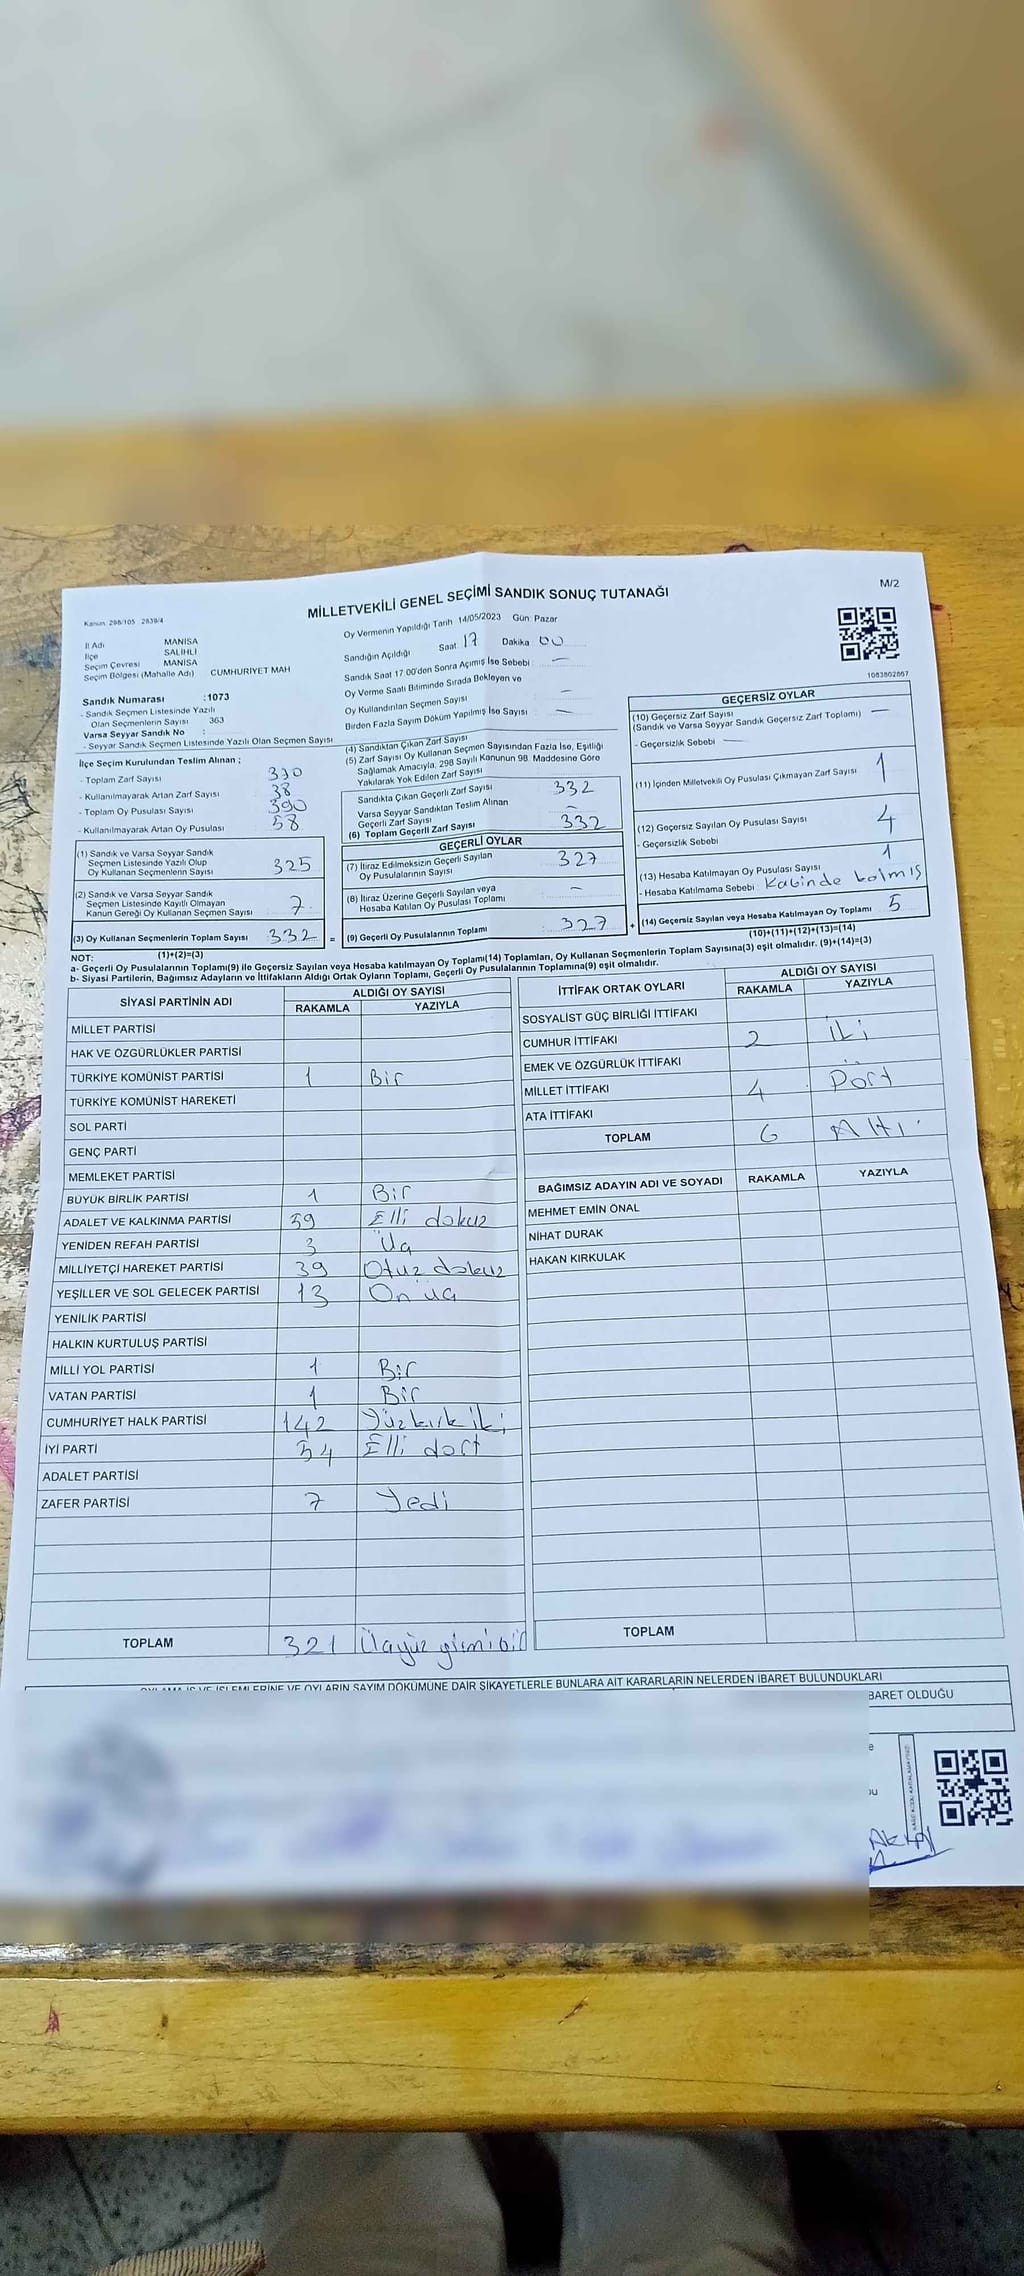 M/2
MİLLETVEKİLİ GENEL SEÇİMİ SANDIK SONUÇ TUTANAĞI
Kanun 298/105 2839/4
İl Adı MANİSA
İlçe SALİHLİ
Seçim Çevresi MANİSA
Seçim Bölgesi (Mahalle Adı) CUMHURİYET MAH
Sandık Numarası :1073
- Sandık Seçmen Listesinde Yazılı
Olan Seçmenlerin Sayısı 363
Varsa Seyyar Sandık No :
- Seyyar Sandık Seçmen Listesinde Yazılı Olan Seçmen Sayısı
Oy Vermenin Yapıldığı Tarih 14/05/2023 Gün Pazar
Sandığın Açıldığı Saat 17 Dakika 00
Sandık Saat 17.00'den Sonra Açımış İse Sebebi : —
Oy Verme Saati Bitiminde Sırada Bekleyen ve
Oy Kullandırılan Seçmen Sayısı —
Birden Fazla Sayım Döküm Yapılmış İse Sayısı —
1083802867
İlçe Seçim Kurulundan Teslim Alınan ;
- Toplam Zarf Sayısı
- Kullanılmayarak Artan Zarf Sayısı 38
- Toplam Oy Pusulası Sayısı 390
- Kullanılmayarak Artan Oy Pusulası 58
(1) Sandık ve Varsa Seyyar Sandık
Seçmen Listesinde Yazılı Olup
Oy Kullanan Seçmenlerin Sayısı 325
(2) Sandık ve Varsa Seyyar Sandık
Seçmen Listesinde Kayıtlı Olmayan
Kanun Gereği Oy Kullanan Seçmen Sayısı 7
(3) Oy Kullanan Seçmenlerin Toplam Sayısı 332 =
(1)+(2)=(3)
(4) Sandıktan Çıkan Zarf Sayısı
(5) Zarf Sayısı Oy Kullanan Seçmen Sayısından Fazla İse, Eşitliği
Sağlamak Amacıyla, 298 Sayılı Kanunun 98. Maddesine Göre
Yakılarak Yok Edilen Zarf Sayısı
Sandıkta Çıkan Geçerli Zarf Sayısı 332
Varsa Seyyar Sandıktan Teslim Alınan
Geçerli Zarf Sayısı —
(6) Toplam Geçerli Zarf Sayısı 332
GEÇERLİ OYLAR
(7) İtiraz Edilmeksizin Geçerli Sayılan
Oy Pusulalarının Sayısı 327
(8) İtiraz Üzerine Geçerli Sayılan veya
Hesaba Katılan Oy Pusulası Toplamı —
(9) Geçerli Oy Pusulalarının Toplamı : 327 +
GEÇERSİZ OYLAR
(10) Geçersiz Zarf Sayısı —
(Sandık ve Varsa Seyyar Sandık Geçersiz Zarf Toplamı)
- Geçersizlik Sebebi —
(11) İçinden Milletvekili Oy Pusulası Çıkmayan Zarf Sayısı 1
(12) Geçersiz Sayılan Oy Pusulası Sayısı 4
- Geçersizlik Sebebi
(13) Hesaba Katılmayan Oy Pusulası Sayısı 1
- Hesaba Katılmama Sebebi : Kabinde kalmış
(14) Geçersiz Sayılan veya Hesaba Katılmayan Oy Toplamı 5
(10)+(11)+(12)+(13)=(14)
NOT:
a- Geçerli Oy Pusulalarının Toplamı(9) ile Geçersiz Sayılan veya Hesaba katılmayan Oy Toplamı(14) Toplamları, Oy Kullanan Seçmenlerin Toplam Sayısına(3) eşit olmalıdır. (9)+(14)=(3)
b- Siyasi Partilerin, Bağımsız Adayların ve İttifakların Aldığı Ortak Oyların Toplamı, Geçerli Oy Pusulalarının Toplamına(9) eşit olmalıdır.
SİYASİ PARTİNİN ADI ALDIĞI OY SAYISI
RAKAMLA YAZIYLA
MİLLET PARTİSİ
HAK VE ÖZGÜRLÜKLER PARTİSİ
TÜRKİYE KOMÜNİST PARTİSİ 1 Bir
TÜRKİYE KOMÜNİST HAREKETİ
SOL PARTİ
GENÇ PARTİ
MEMLEKET PARTİSİ
BÜYÜK BİRLİK PARTİSİ 1 Bir
ADALET VE KALKINMA PARTİSİ 59 Elli dokuz
YENİDEN REFAH PARTİSİ 3 Üç
MİLLİYETÇİ HAREKET PARTİSİ 39 Otuz dokuz
YEŞİLLER VE SOL GELECEK PARTİSİ 13 On üç
YENİLİK PARTİSİ
HALKIN KURTULUŞ PARTİSİ
MİLLİ YOL PARTİSİ 1 Bir
VATAN PARTİSİ 1 Bir
CUMHURİYET HALK PARTİSİ 142 Yüz kırk iki
İYİ PARTİ 54 Elli dört
ADALET PARTİSİ
ZAFER PARTİSİ 7 Yedi
TOPLAM 321 Üçyüz yirmi bir
İTTİFAK ORTAK OYLARI ALDIĞI OY SAYISI
RAKAMLA YAZIYLA
SOSYALİST GÜÇ BİRLİĞİ İTTİFAKI
CUMHUR İTTİFAKI 2 İki
EMEK VE ÖZGÜRLÜK İTTİFAKI
MİLLET İTTİFAKI 4 Dört
ATA İTTİFAKI
TOPLAM 6 Altı
BAĞIMSIZ ADAYIN ADI VE SOYADI RAKAMLA YAZIYLA
MEHMET EMİN ÖNAL
NİHAT DURAK
HAKAN KIRKULAK
TOPLAM
İŞLEMLERİNE VE OYLARIN SAYIM DÖKÜMÜNE DAİR ŞİKAYETLERLE BUNLARA AİT KARARLARIN NELERDEN İBARET BULUNDUKLARI
BARET OLDUĞU